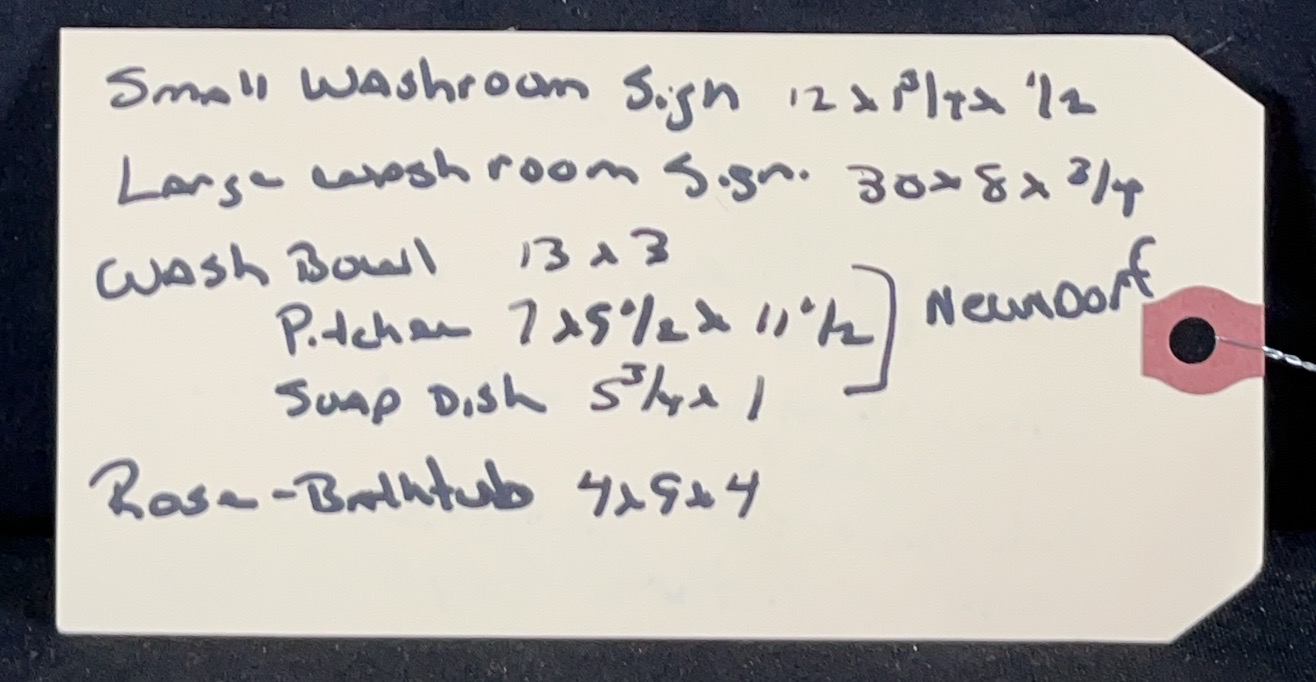 Small Washroom Sign 12 x 1 3/4 x 1/2
Large washroom Sign. 30 x 8 x 3/4
Wash Bowl 13 x 3
Pitcher 7 x 9 1/2 x 11 1/2
Soap Dish 5 3/4 x 1
Neundorf
Rose-Bathtub 4 x 9 x 4